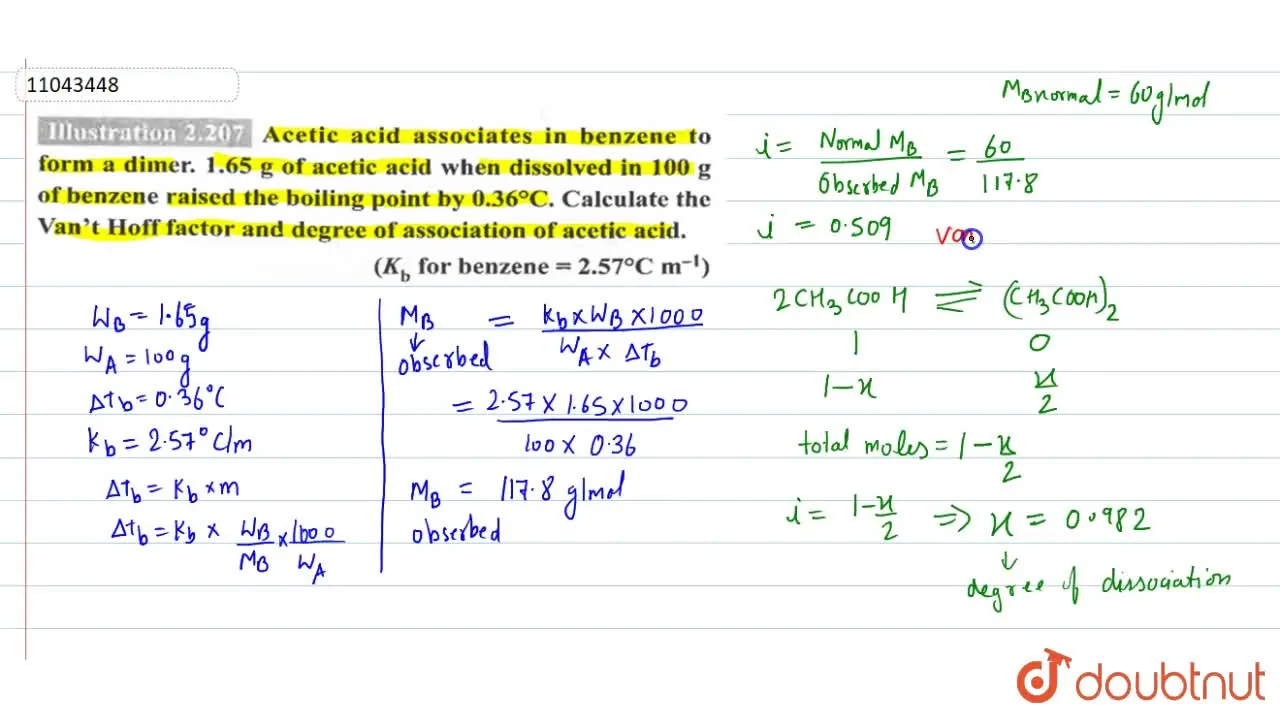 11043448
Illustration 2.207 Acetic acid associates in benzene to
form a dimer. 1.65 g of acetic acid when dissolved in 100 g
of benzene raised the boiling point by 0.36°C. Calculate the
Van't Hoff factor and degree of association of acetic acid.
(K_b for benzene = 2.57°C m⁻¹)
W_B = 1.65g
W_A = 100g
Δt_b = 0.36°C
K_b = 2.57°C/m
Δt_b = K_b × m
Δt_b = K_b × W_B/M_B × 1000/W_A
M_B observed = K_b × W_B × 1000 / W_A × ΔT_b
= 2.57 × 1.65 × 1000 / 100 × 0.36
M_B = 117.8 g/mol
observed
M_B normal = 60 g/mol
i = Normal M_B / Observed M_B = 60 / 117.8
i = 0.509
Van
2CH₃COOH ⇌ (CH₃COOH)₂
1 0
1-x x/2
total moles = 1 - x/2
i = 1 - x/2 ⇒ x = 0.982
↓
degree of dissociation
doubtnut